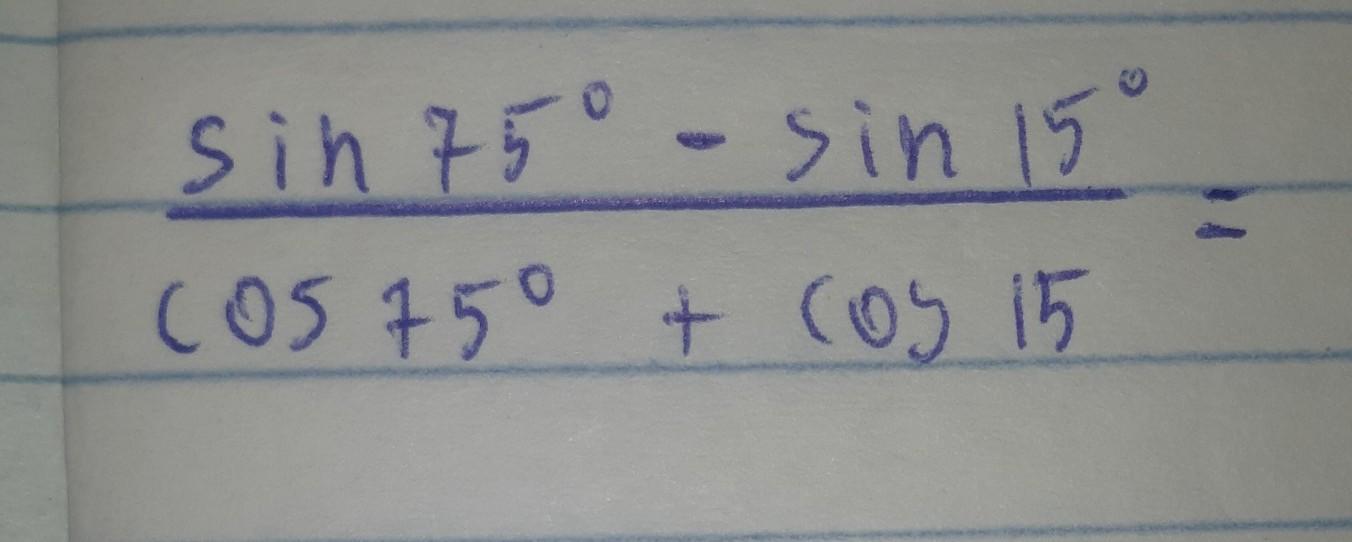 sin 75° - sin 15° =
cos 75° + cos 15